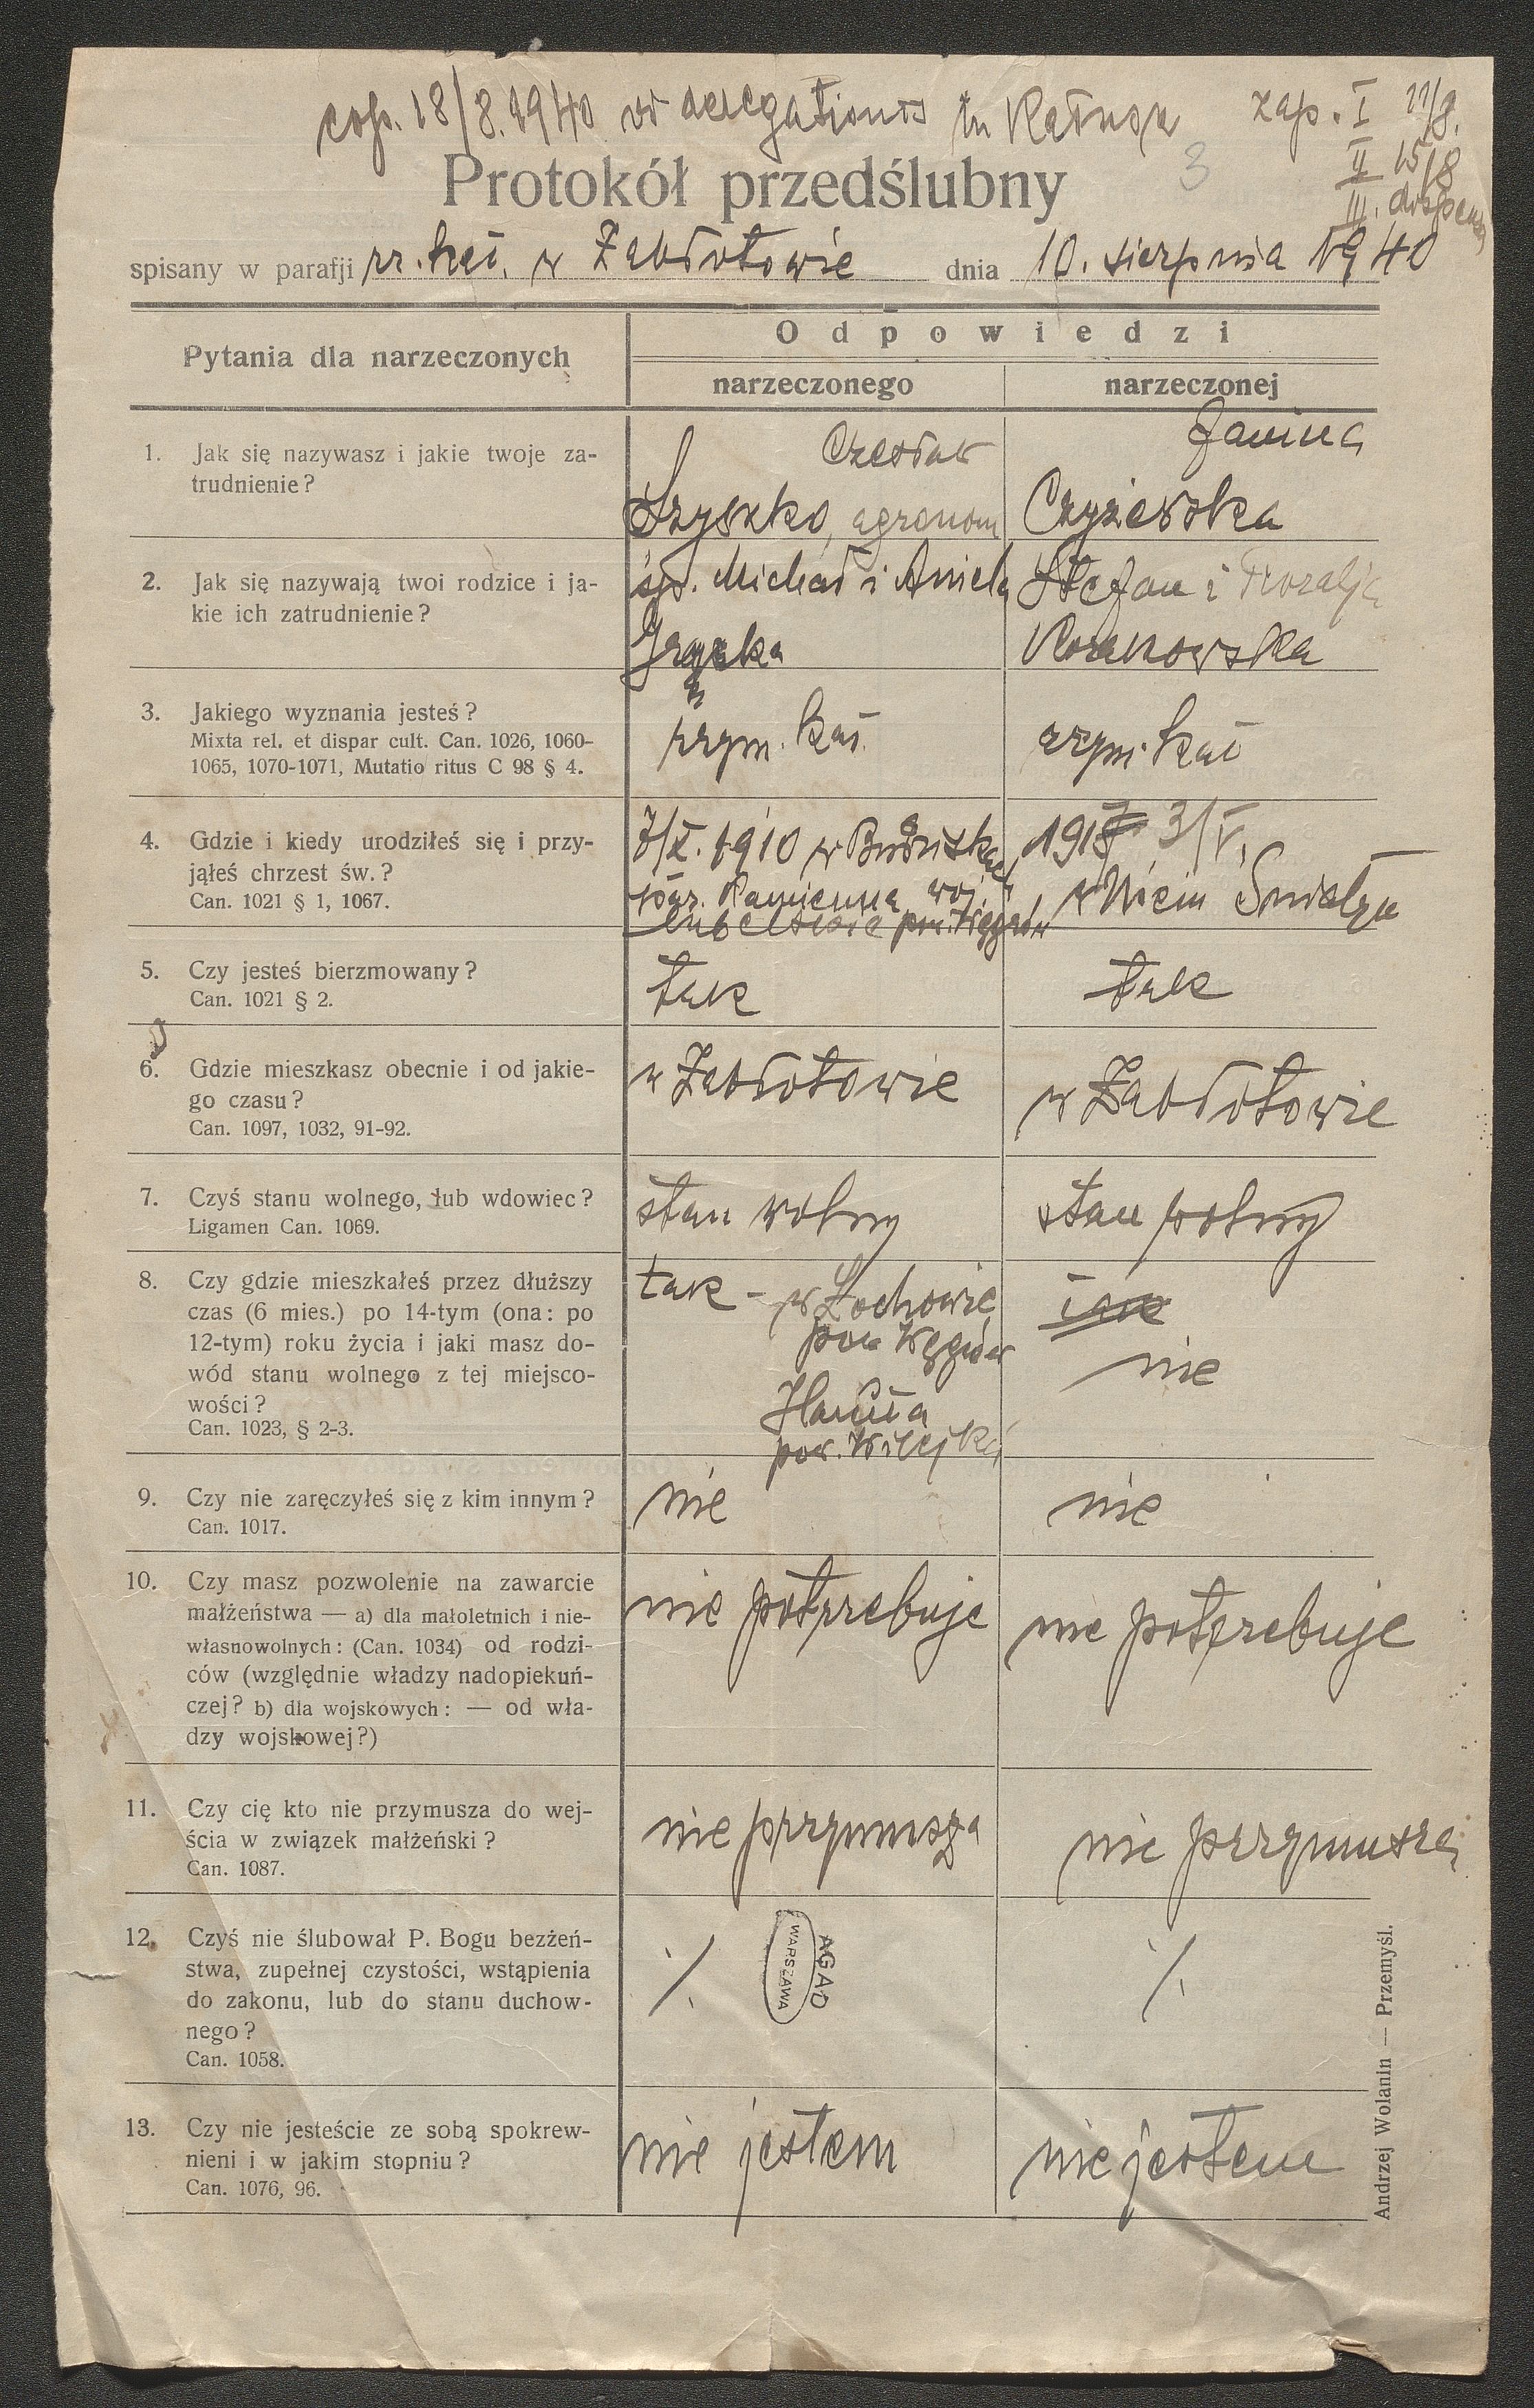 cop. 18/8. 1940 delegationis in
zap. I 11/8.
II 15/8
III.
3
Protokół przedślubny
spisany w parafji rz. kat. w Zabłotowie dnia 10. sierpnia 1940
Pytania dla narzeczonych
Odpowiedzi
narzeczonego
narzeczonej
1. Jak się nazywasz i jakie twoje za-
trudnienie?
Czesław
Szyszko, agronom
Janina
Czyżewska
2. Jak się nazywają twoi rodzice i ja-
kie ich zatrudnienie?
śp. Michał i Aniela
Stefan i Rozalja
3. Jakiego wyznania jesteś?
Mixta rel. et dispar cult. Can. 1026, 1060-
1065, 1070-1071, Mutatio ritus C 98 § 4.
rzym. kat.
rzym. kat
4. Gdzie i kiedy urodziłeś się i przy-
jąłeś chrzest św.?
Can. 1021 § 1, 1067.
7/X. 1910 w
par. Kamienna woj.
lubelskie pow. Węgrów
3/V.
w
5. Czy jesteś bierzmowany?
Can. 1021 § 2.
tak
tak
6. Gdzie mieszkasz obecnie i od jakie-
go czasu?
Can. 1097, 1032, 91-92.
w Zabłotowie
w Zabłotowie
7. Czyś stanu wolnego, lub wdowiec?
Ligamen Can. 1069.
stan wolny
stan wolny
8. Czy gdzie mieszkałeś przez dłuższy
czas (6 mies.) po 14-tym (ona: po
12-tym) roku życia i jaki masz do-
wód stanu wolnego z tej miejsco-
wości?
Can. 1023, § 2-3.
tak - w Łochowie
pow Węgrów
pow. Wilejka
tak
nie
9. Czy nie zaręczyłeś się z kim innym?
Can. 1017.
nie
nie
10. Czy masz pozwolenie na zawarcie
małżeństwa — a) dla małoletnich i nie-
własnowolnych: (Can. 1034) od rodzi-
ców (względnie władzy nadopiekuń-
czej? b) dla wojskowych: — od wła-
dzy wojskowej?)
nie potrzebuje
nie potrzebuje
11. Czy cię kto nie przymusza do wej-
ścia w związek małżeński?
Can. 1087.
nie przymusza
nie przymusza
12. Czyś nie ślubował P. Bogu bezżeń-
stwa, zupełnej czystości, wstąpienia
do zakonu, lub do stanu duchow-
nego?
Can. 1058.
·/.
·/.
AGAD
WARSZAWA
13. Czy nie jesteście ze sobą spokrew-
nieni i w jakim stopniu?
Can. 1076, 96.
nie jestem
nie jestem
Andrzej Wolanin — Przemyśl.